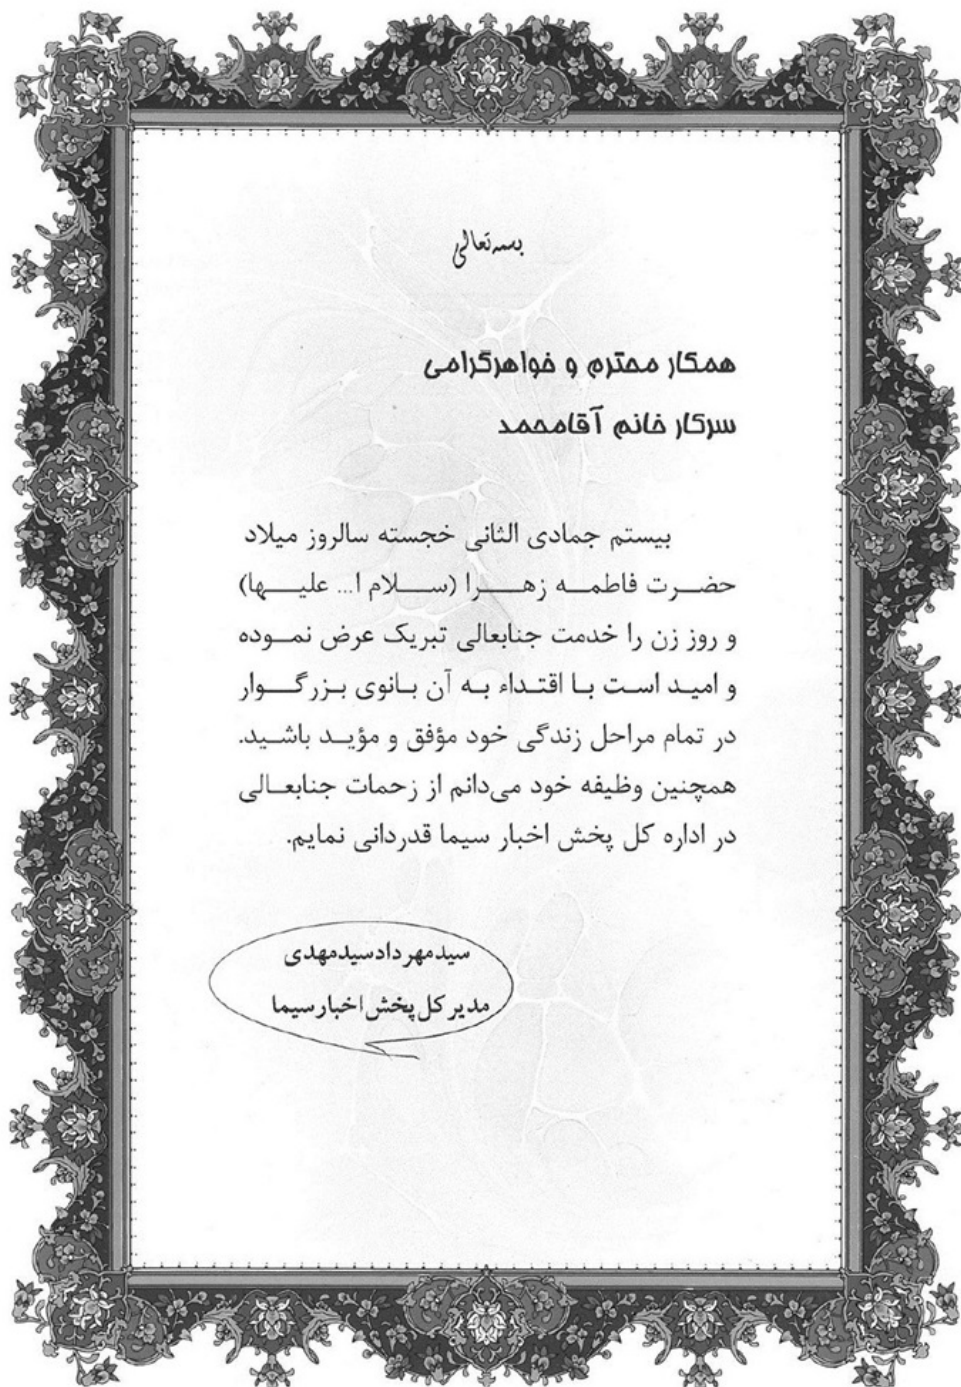 بسمه تعالی
همکار محترم و خواهرگرامی
سرکار خانم آقامحمد
بیستم جمادی الثانی خجسته سالروز میلاد
حضرت فاطمه زهرا (سلام ا... علیها)
و روز زن را خدمت جنابعالی تبریک عرض نموده
و امید است با اقتداء به آن بانوی بزرگوار
در تمام مراحل زندگی خود مؤفق و مؤید باشید.
همچنین وظیفه خود می‌دانم از زحمات جنابعالی
در اداره کل پخش اخبار سیما قدردانی نمایم.
سیدمهردادسیدمهدی
مدیرکل پخش اخبارسیما